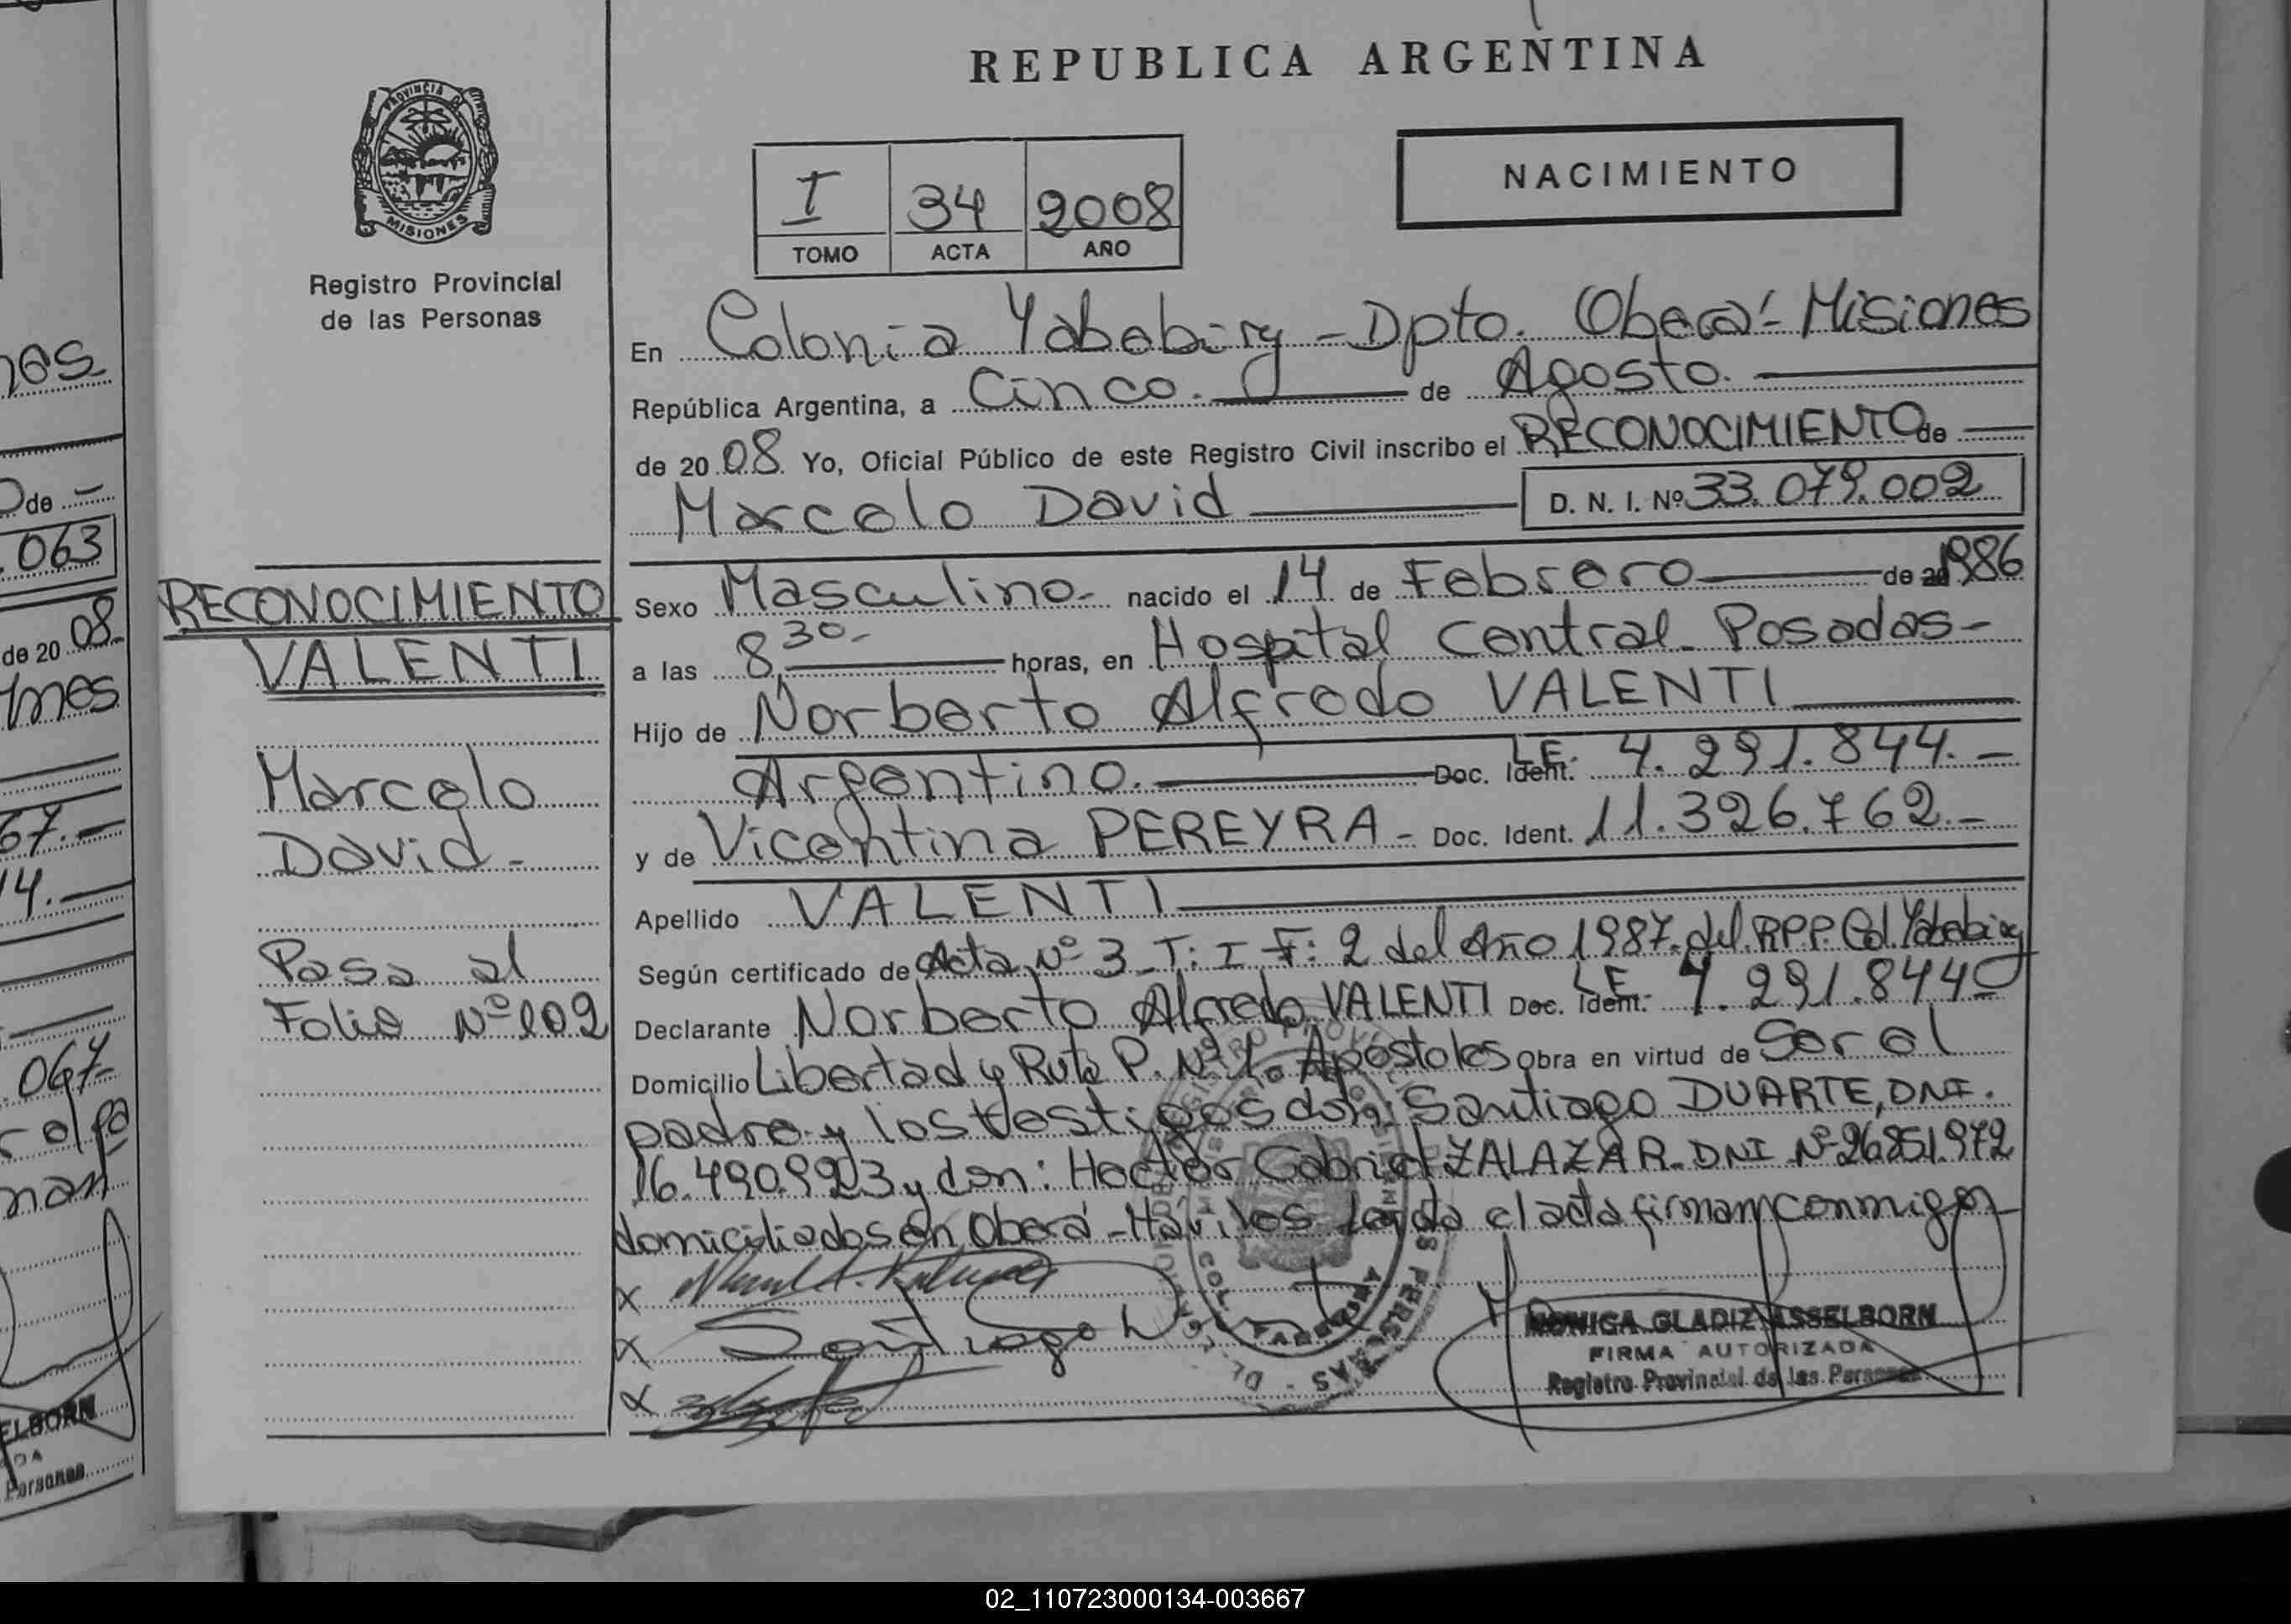 REPUBLICA ARGENTINA
PROVINCIA DE
MISIONES
Registro Provincial
de las Personas
I 34 2008
TOMO ACTA AÑO
NACIMIENTO
En Colonia Yabebiry - Dpto. Oberá - Misiones
República Argentina, a Cinco. de Agosto.
de 20 08. Yo, Oficial Público de este Registro Civil inscribo el RECONOCIMIENTO de
Marcelo David D. N. I. Nº 33.079.002
Sexo Masculino- nacido el 14 de Febrero de 1986
a las 8,30- horas, en Hospital Central- Posadas-
Hijo de Norberto Alfredo VALENTI
Argentino. Doc. Ident. L.E. 4.291.844.-
y de Vicentina PEREYRA - Doc. Ident. 11.326.762.-
Apellido VALENTI
Según certificado de Acta Nº 3 - T: I F: 2 del Año 1987. del R.P.P. Col. Yabebiry
Declarante Norberto Alfredo VALENTI Doc. Ident. L.E. 4.291.844
Domicilio Libertad y Ruta P. Nº 1. Apóstoles Obra en virtud de Ser el
padre y los testigos don: Santiago DUARTE, DNI.
16.490.923 y don: Hector Gabriel ZALAZAR. DNI Nº 26.851.972
domiciliados en Oberá - Leída el acta firman conmigo
MONICA GLADIZ ASSELBORN
FIRMA AUTORIZADA
Registro Provincial de las Personas
RECONOCIMIENTO
VALENTI
Marcelo
David-
Pasa al
Folio Nº 102
063
de 20 08-
67.-
14.-
067-
02_110723000134-003667